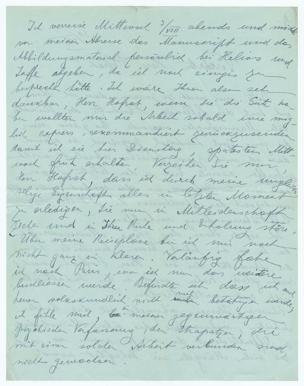 Ich verreise Mittwoch 3/VIII abends und möchte
vor meiner Abreise das Manuscript und das
Abbildungsmaterial persönlich bei Helios und
Jaffe abgeben, da ich noch einiges zu
besprechen hätte. Ich wäre Ihnen also sehr
dankbar, Herr Hofrat, wenn Sie die Güte ha-
ben wollten mir die Arbeit sobald
express, rekommandiert zurückzusenden,
damit ich sie hier Dienstag, spätestens Mitt-
woch früh erhalte. Verzeihen Sie mir
Herr Hofrat, dass ich durch meine unglück-
selige Eigenschaft alles im letzten Moment
zu erledigen, Sie nun in Mitleidenschaft
ziehe und in Ihrer Ruhe und Erholung störe.
Über meine Reisepläne bin ich mir noch
nicht ganz im Klaren. Vorläufig fahre
ich nach Paris, wo ich nun das weitere
werde. Befürchte ich, dass ich mich
noch nicht werde,
ich fühle mich, in meiner gegenwärtigen
physischen Verfassung, den Strapazen, die
mit einer solchen Arbeit verbunden sind,
nicht gewachsen.